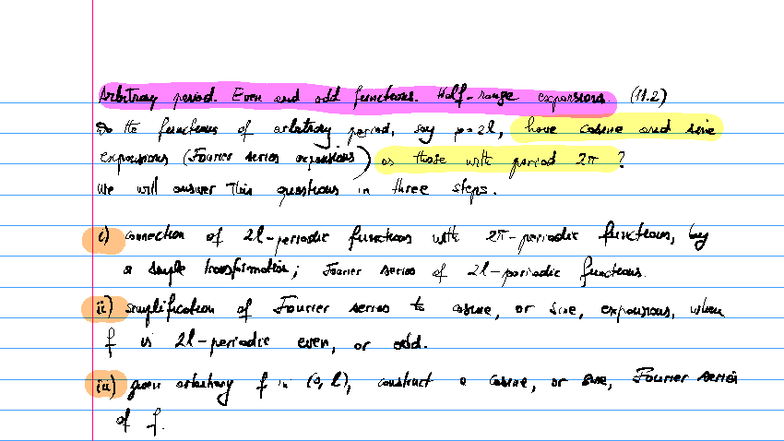 Arbitrary period. Even and odd functions. Half-range expansions. (11.2)
Do the functions of arbitrary period, say p=2l, have cosine and sine
expansions (Fourier series expansions) as those with period 2π?
We will answer this questions in three steps.
i) connection of 2l-periodic functions with 2π-periodic functions, by
a simple transformation; Fourier series of 2l-periodic functions.
ii) simplification of Fourier series to cosine, or sine, expansions, when
f is 2l-periodic even, or odd.
iii) given arbitrary f in (0, l), construct a cosine, or sine, Fourier series
of f.